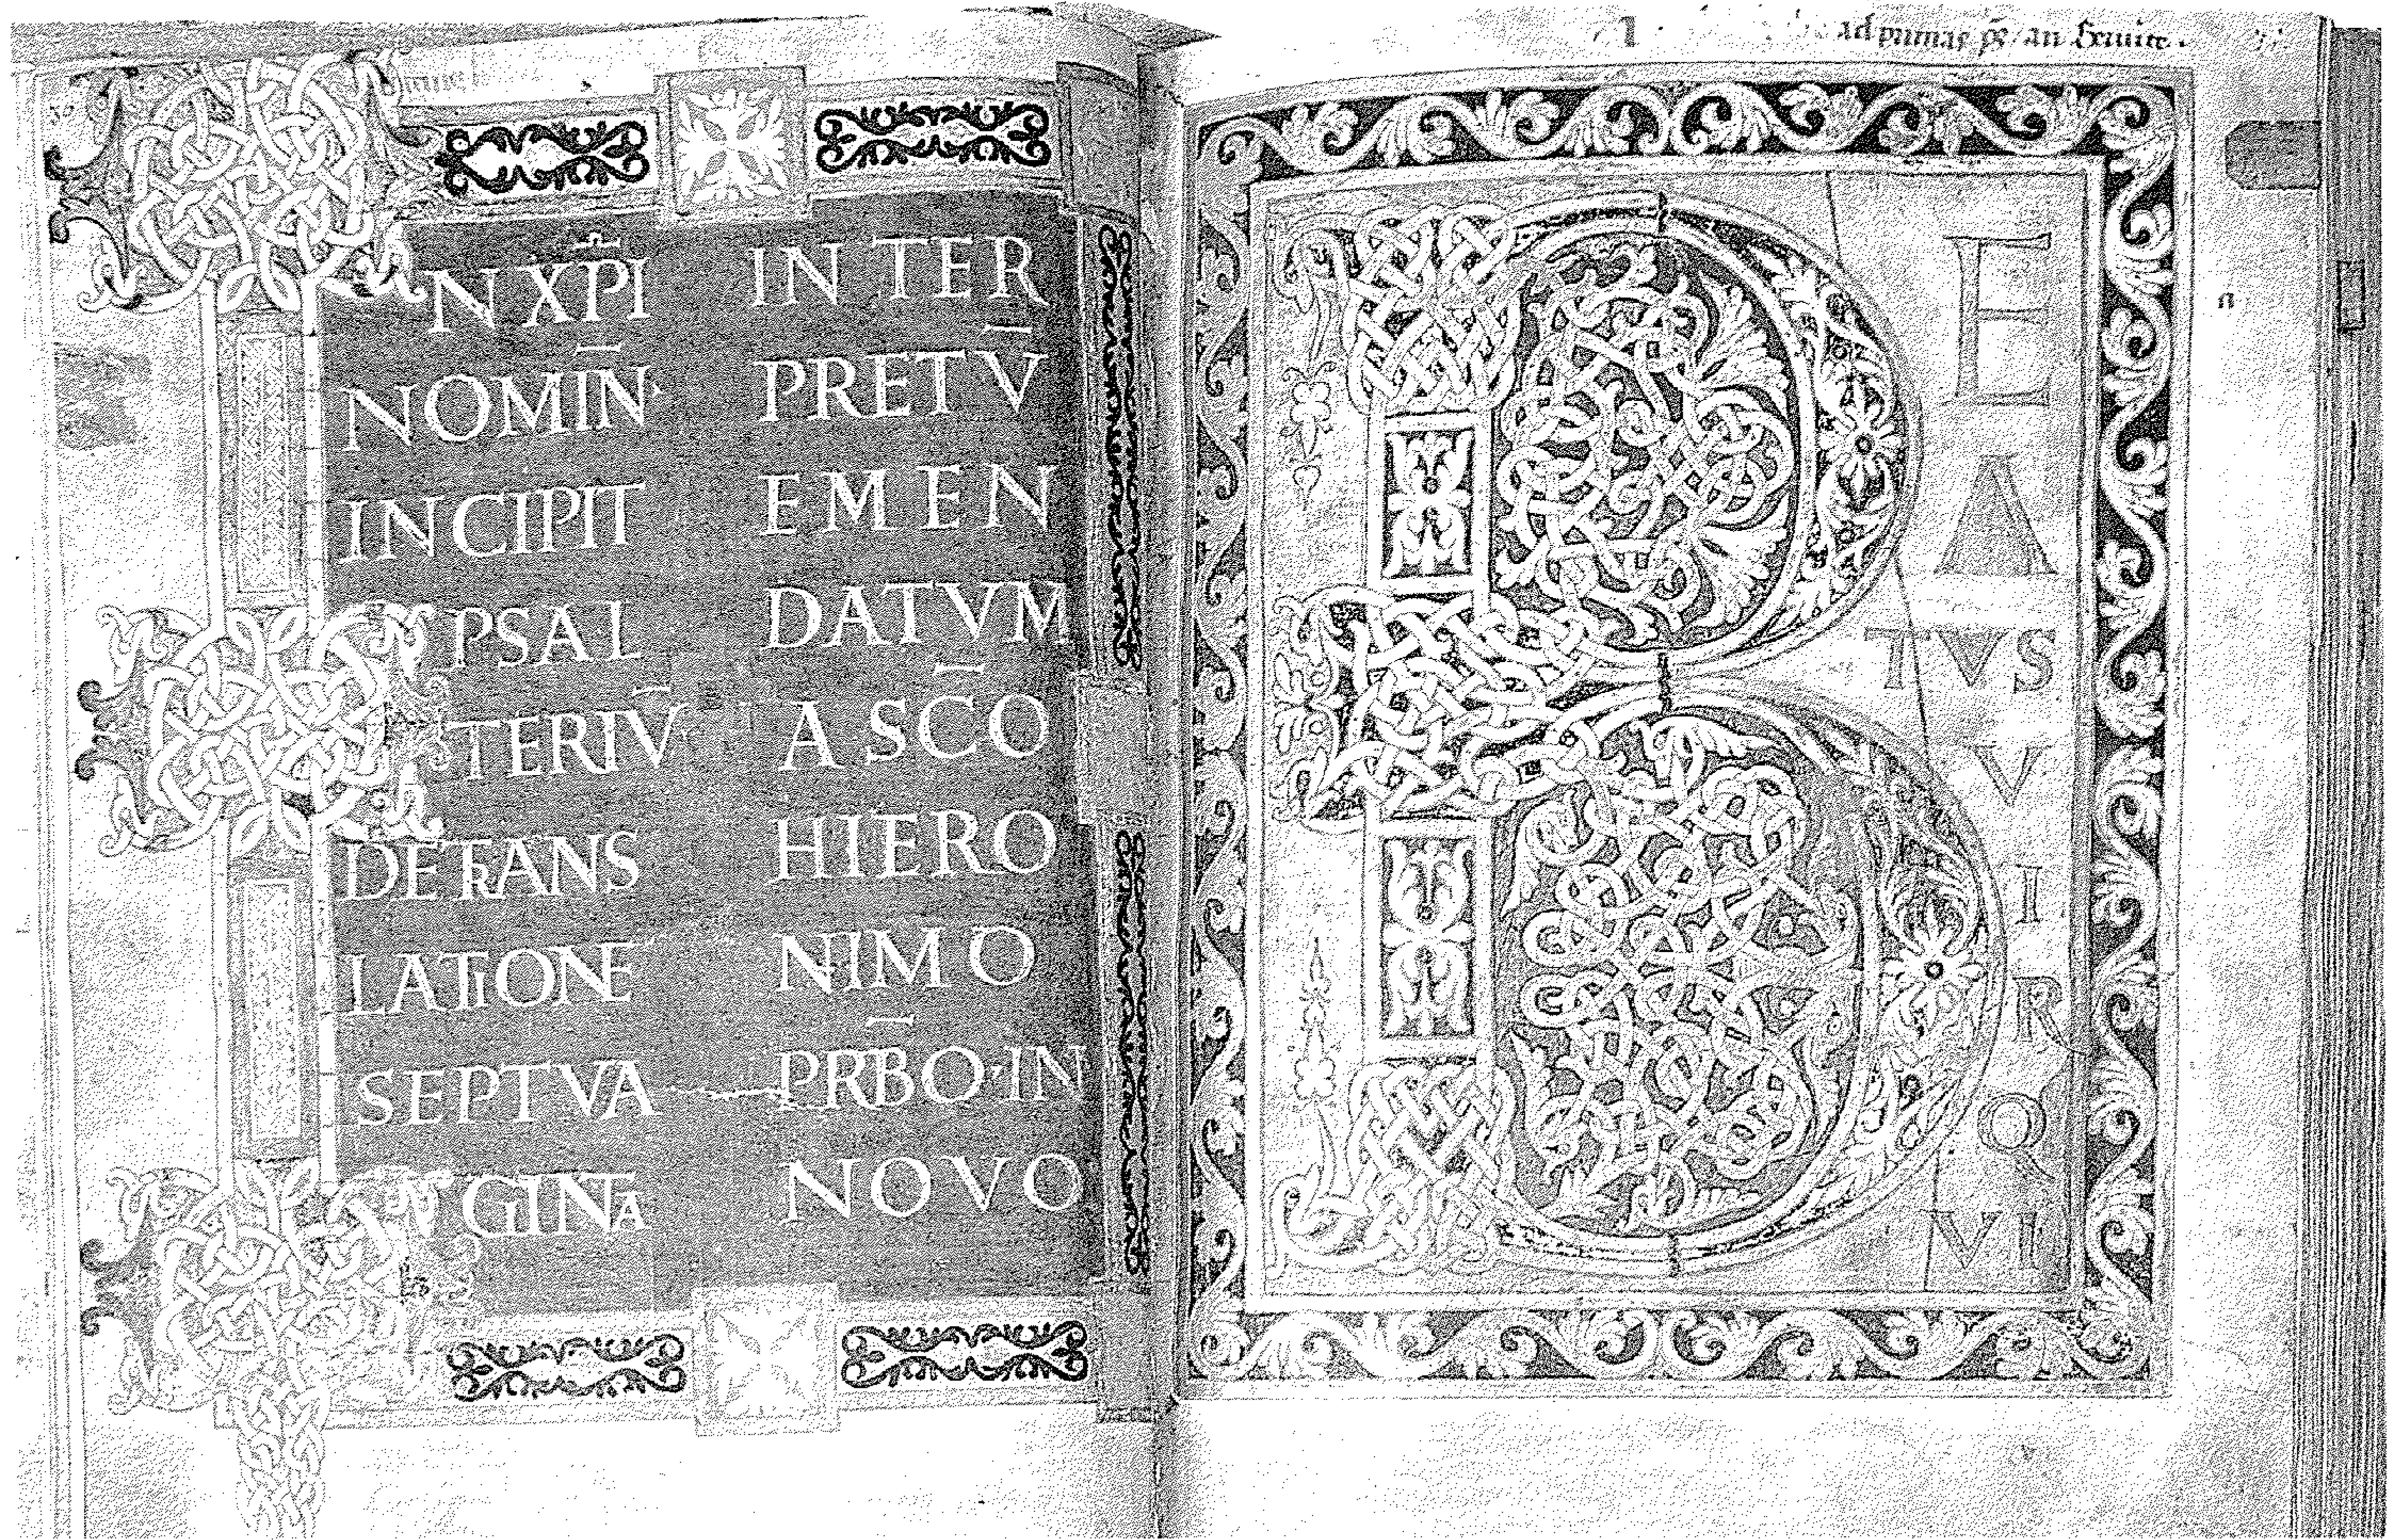 ad primas
IN XP̄I
NOMIN̄
INCIPIT
PSAL
TERIV̄
DE TRANS
LATIONE
SEPTVA
GINTA
IN TER
PRETV̄
EMEN
DATVM
A SC̄O
HIERO
NIMO
PRB̄O·IN
NOVO
B
E
A
TVS
V
I
R
Q
VI